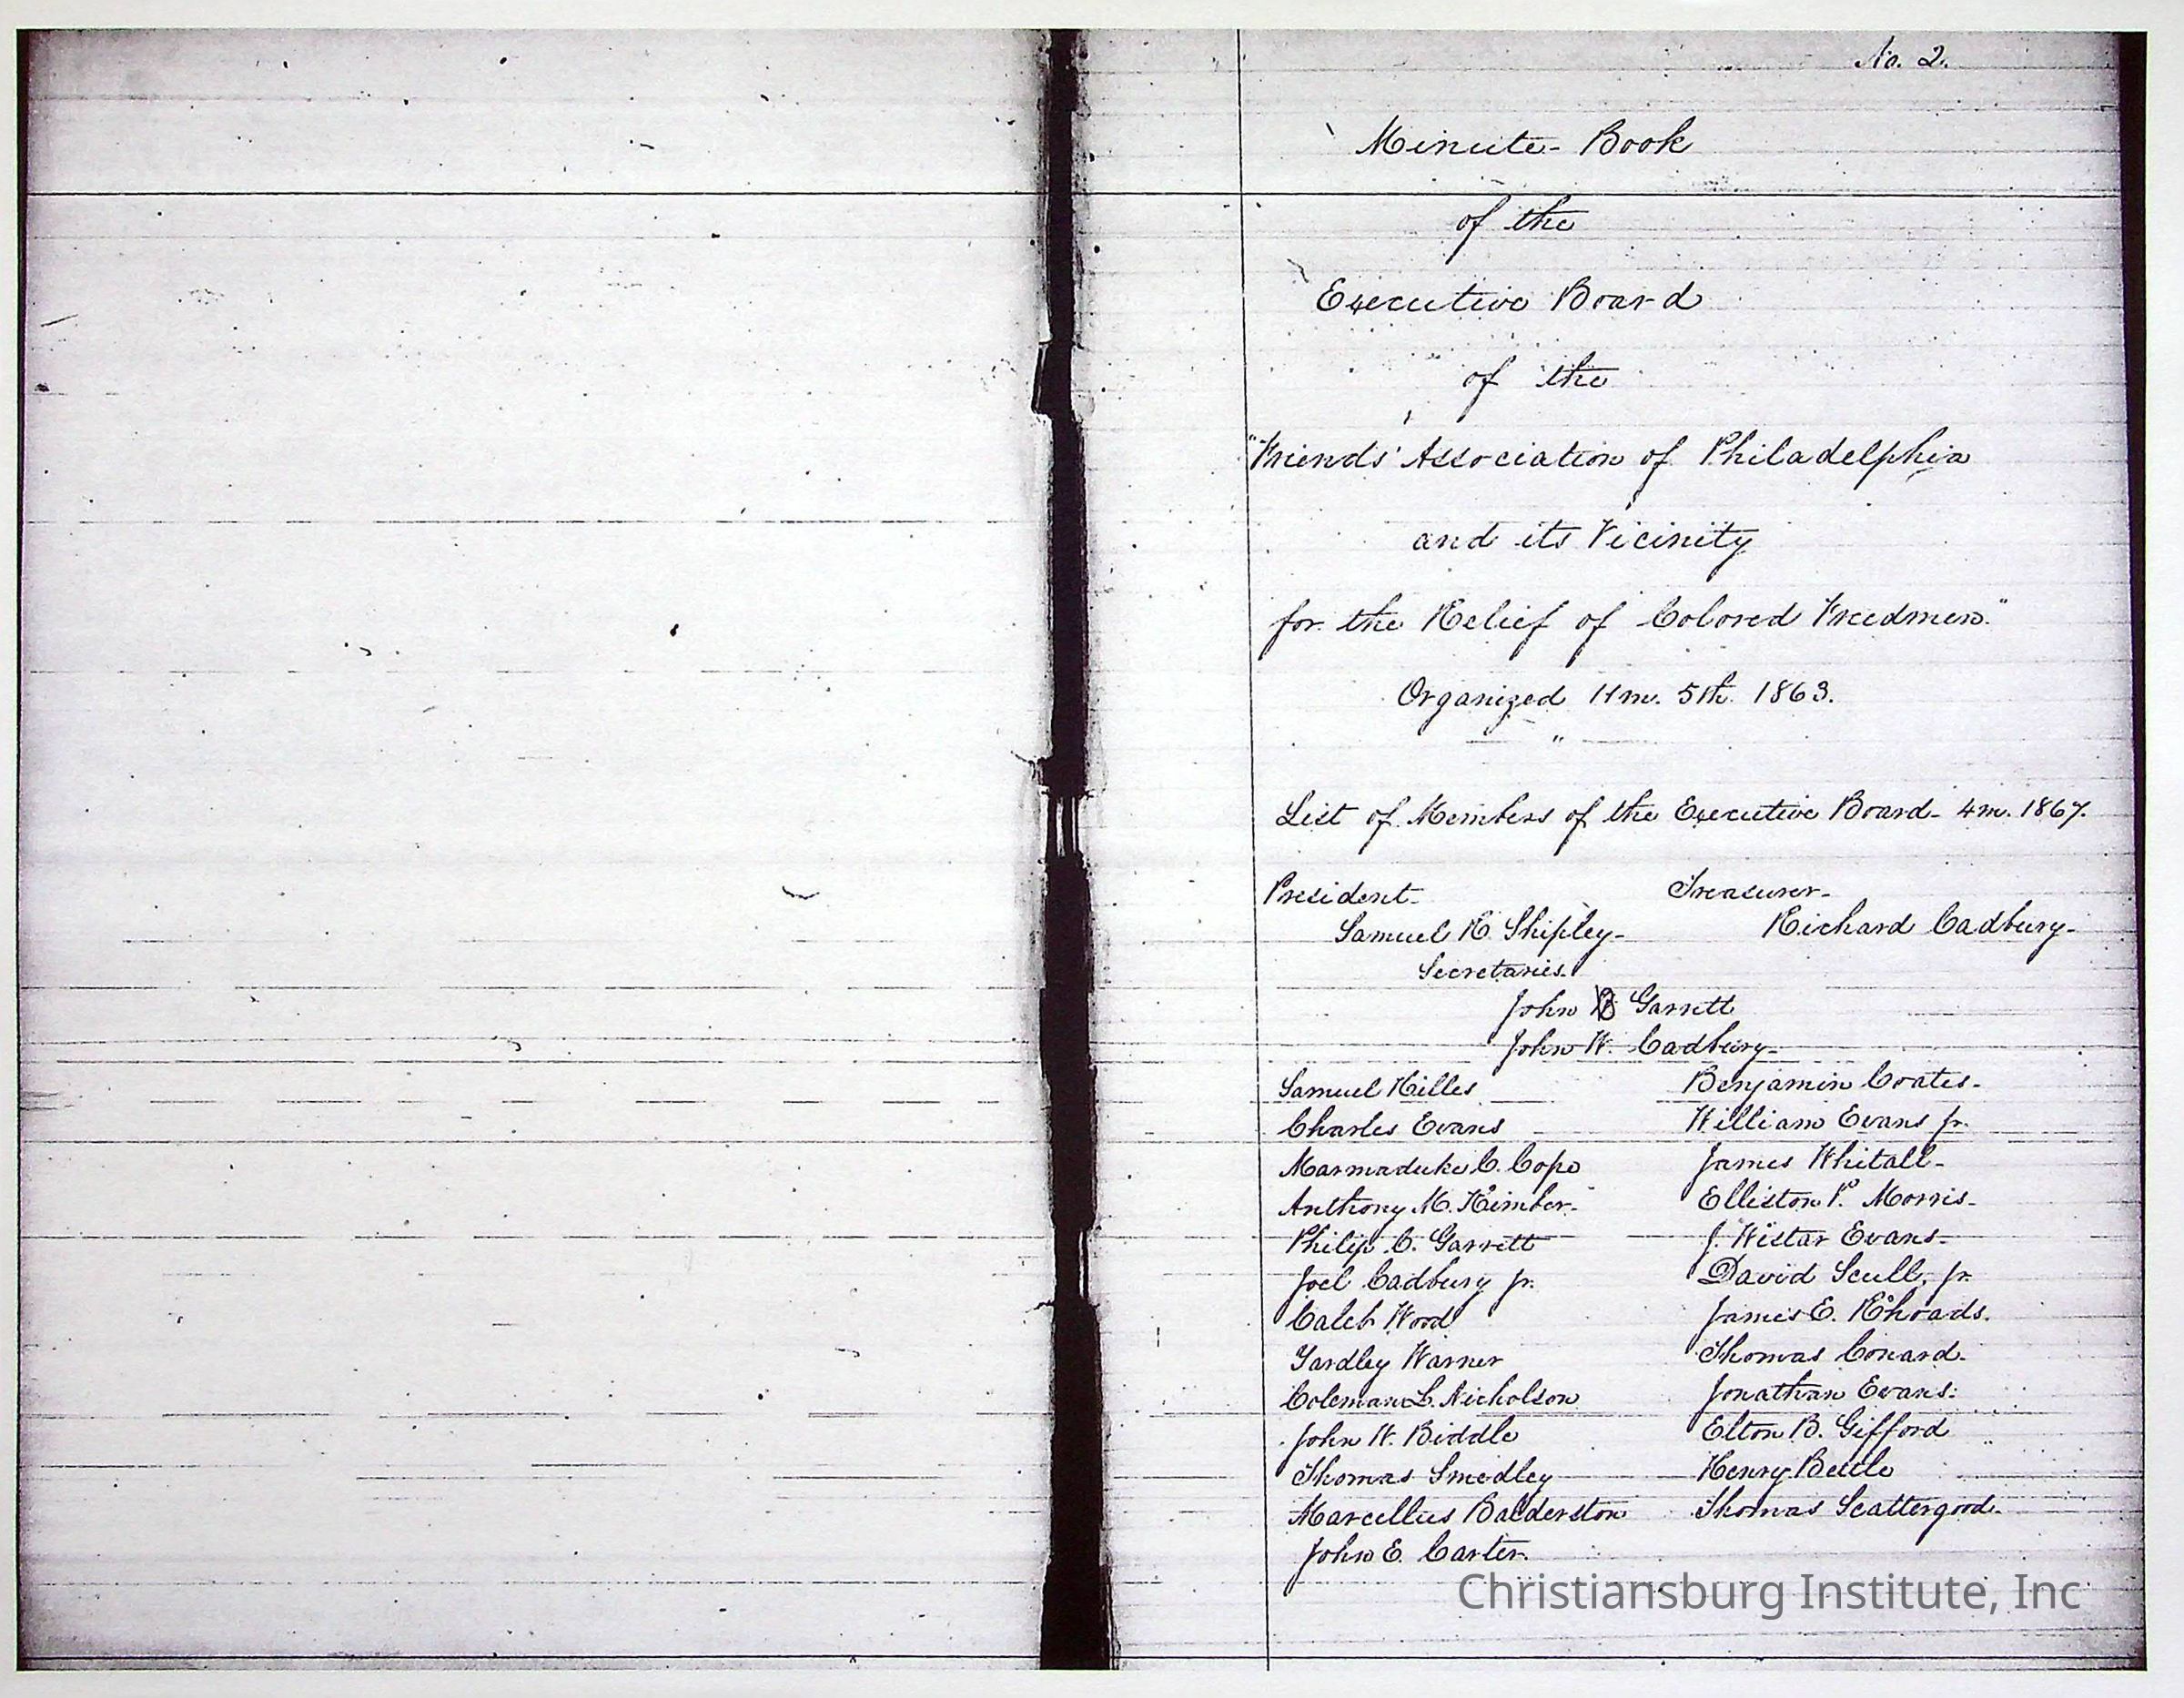 No. 2.
Minute-Book
of the
Executive Board
of the
"Friends' Association of Philadelphia
and its Vicinity
for the Relief of Colored Freedmen."
Organized 11m. 5th 1863.
List of Members of the Executive Board- 4m. 1867.
President- Treasurer-
Samuel R Shipley- Richard Cadbury-
Secretaries-
John B Garrett
John W. Cadbury-
Samuel Hilles Benjamin Coates-
Charles Evans William Evans Jr.
Marmaduke C. Cope James Whitall-
Anthony M. Kimber- Elliston P. Morris-
Philip C. Garrett J. Wistar Evans-
Joel Cadbury Jr. David Scull, Jr.
Caleb Wood James E. Rhoads.
Yardley Warner Thomas Conard-
Coleman L. Nicholson Jonathan Evans-
John W. Biddle Elton B. Gifford
Thomas Smedley Henry Bettle
Marcellus Balderston Thomas Scattergood-
John E. Carter-
Christiansburg Institute, Inc